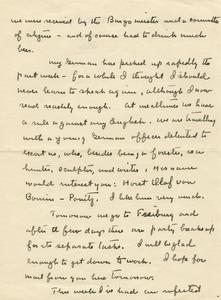 we were received by the Burgomeister and a committee
of citizens - and of course had to drink much
beer.
My German has picked up rapidly the
past week - for a while I thought I should
never learn to speak again, although I now
read readily enough. At mealtimes we have
a rule against any English. We are
with a young German officer detailed to
escort us, who, besides being a forester, is a
hunter, sculptor, and writer, His name
would interest you: Horst Olaf von
Bonin - I like him very much.
Tomorrow we go to Freiburg and
after a few days there our party breaks up
for its separate tasks. I will be glad
enough to get down to work. I hope for
mail from you here tomorrow.
This week I've had an infected